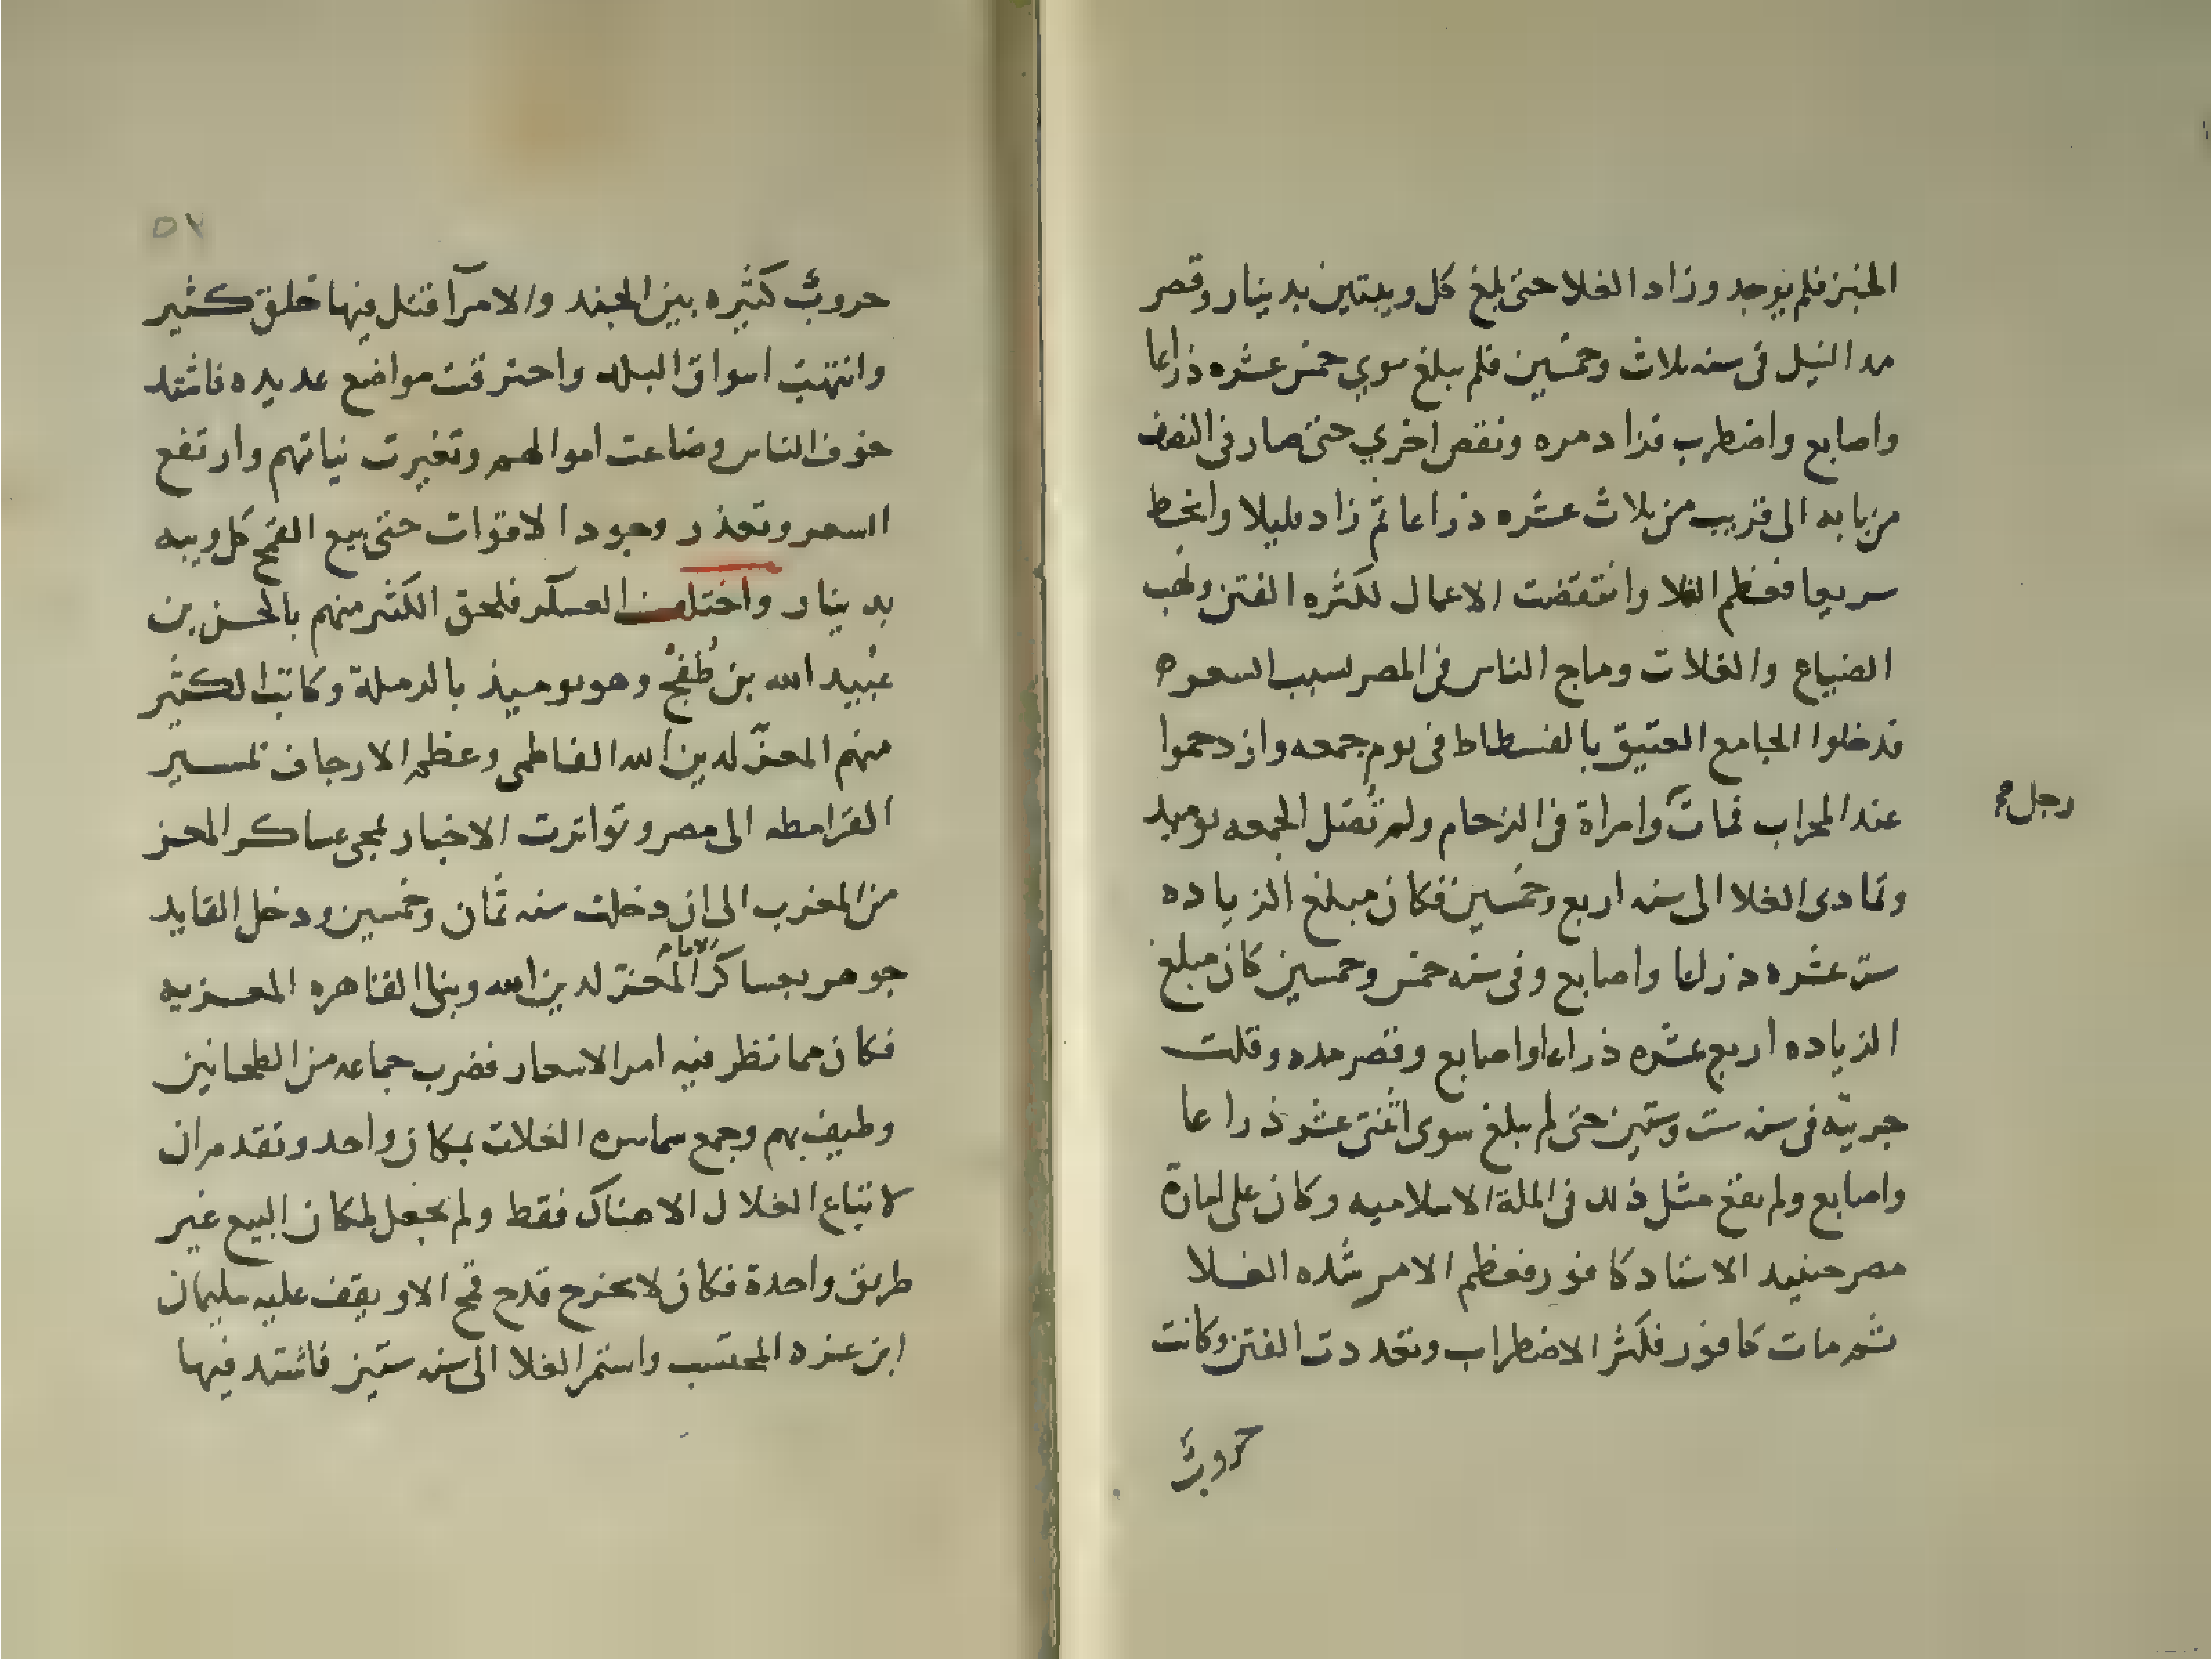 الخبز فلم يوجد وزاد الغلا حتى بلغ كل ويبتين بدينار وقصر
مد النيل فى سنه ثلاث وخمسين فلم يبلغ سوي خمس عشره ذراعا
واصابع واضطرب فزاد مره ونقص اخري حتى صار فى النصف
من بابه الى قريب من ثلاث عشره ذراعا ثم زاد قليلا وانحط
سريعا فعظم الغلا وانتقضت الاعمال لكثره الفتن ونهب
الضياع والغلات وماج الناس فى المصر لسبب السعر
فدخلوا الجامع العتيق بالفسطاط فى يوم جمعه وازدحموا
عند المحراب فمات وامراة فى الزحام ولم تصل الجمعه يوميد
رجل
وتمادى الغلا الى سنه اربع وخمسين فكان مبلغ الزياده
ست عشره ذراعا واصابع وفى سنه خمس وخمسين كان مبلغ
الزياده اربع عشره ذراعا واصابع وقصر مده وقلت
جريته فى سنه ست وستين حتى لم يبلغ سوى اثنتى عشر ذراعا
واصابع ولم يقع مثل ذلك فى الملة الاسلاميه وكان على امارة
مصر حينيد الاستاد كافور فعظم الامر شده الغلا
ثم مات كافور فكثر الاضطراب وتعددت الفتن وكانت
حروبٌ
٥٢
حروبٌ كثيره بين الجند والامرآ قتل فيها خلق كثير
وانتهبت اسواق البلد واحترقت مواضع عديده فاشتد
خوف الناس وضاعت اموالهم وتغيرت نياتهم وارتفع
السعر وتعذر وجود الاقوات حتى بيع القمح كل ويبه
بدينار واختلف العسكر فلحق الكثير منهم بالحسن بن
عُبيد الله بن طُغج وهو يوميذ بالرملة وكاتب الكثير
منهم المعزّ لدين الله الفاطمى وعظم الارجاف بمسير
القرامطه الى مصر وتواترت الاخبار بمجى عساكر المعز
من المغرب الى ان دخلت سنه ثمان وخمسين ودخل القايد
جوهر بعساكر الامام المعز لدين الله وبنى القاهره المعزيه
فكان مما نظر فيه امر الاسعار فضرب جماعه من الطحانين
وطيف بهم وجمع سماسره الغلات بمكان واحد وتقدم ان
لا تباع الغلال الا هناك فقط ولم يجعل لمكان البيع غير
طريق واحدة فكان لا يخرج قدح قمح الا ويقف عليه سليمان
ابن عزه المحتسب واستمر الغلا الى سنه ستين فاشتد فيها